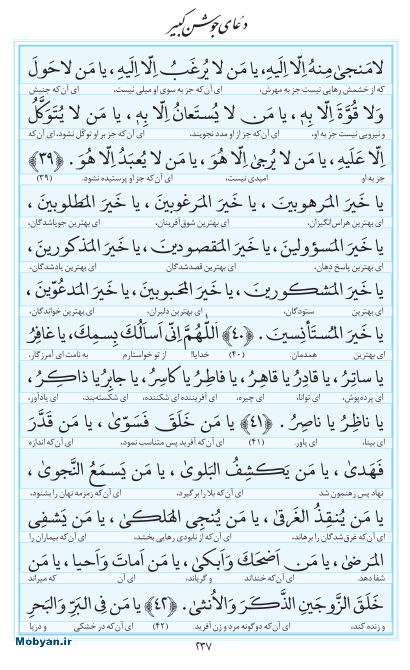 دعای جوشن کبیر
لامَنجیٰ مِنهُ اِلّا اِلَیهِ، یا مَن لا یُرغَبُ اِلّا اِلَیهِ، یا مَن لا حَولَ
که از خشمش رهایی نیست جز به مهرش، ای آن‌که جز به سوی او میلی نیست، ای آن‌که جنبش
وَلا قُوَّةَ اِلّا بِهِ، یا مَن لا یُستَعانُ اِلّا بِهِ، یا مَن لا یُتَوَکَّلُ
و نیرویی نیست جز به او، ای آن‌که جز از او مدد نجویند، ای آن‌که جز بر او توکّل نشود، ای آن‌که
اِلّا عَلَیهِ، یا مَن لا یُرجیٰ اِلّا هُوَ، یا مَن لا یُعبَدُ اِلّا هُوَ. ﴿۳۹﴾
جز به او امیدی نیست، ای آن‌که جز او پرستیده نشود. (۳۹)
یا خَیرَ المَرهوبینَ، یا خَیرَ المَرغوبینَ، یا خَیرَ المَطلوبینَ،
ای بهترین هراس‌انگیزان، ای بهترین شوق‌آفرینان، ای بهترین جویاشدگان،
یا خَیرَ المَسؤولینَ، یا خَیرَ المَقصودینَ، یا خَیرَ المَذکورینَ،
ای بهترین پاسخ دهان، ای بهترین قصدشدگان، ای بهترین یادشدگان،
یا خَیرَ المَشکورینَ، یا خَیرَ المَحبوبینَ، یا خَیرَ المَدعُوّینَ،
ای بهترین ستودگان، ای بهترین دلبران، ای بهترین خواندگان،
یا خَیرَ المُستَأنِسینَ. ﴿۴۰﴾ اَللّٰهُمَّ اِنّی اَسأَلُکَ بِسمِکَ، یا غافِرُ
ای بهترین همدمان. (۴۰) خدایا! از تو خواستارم به نامت ای آمرزگار،
یا ساتِرُ، یا قادِرُ یا قاهِرُ، یا فاطِرُ یا کاسِرُ، یا جابِرُ یا ذاکِرُ،
ای پرده‌پوش، ای توانا، ای چیره، ای آفریننده ای شکننده، ای شکسته‌بند، ای یادآور،
یا ناظِرُ یا ناصِرُ. ﴿۴۱﴾ یا مَن خَلَقَ فَسَوّیٰ، یا مَن قَدَّرَ
ای بینا، ای یاور. (۴۱) ای آن‌که آفرید پس متناسب نمود، ای آن‌که اندازه
فَهَدیٰ، یا مَن یَکشِفُ البَلویٰ، یا مَن یَسمَعُ النَّجویٰ،
نهاد پس رهنمون شد ای آن‌که بلا را برگیرد، ای آن‌که زمزمه نهان را بشنود،
یا مَن یُنقِذُ الغَرقیٰ، یا مَن یُنجِی الهَلکیٰ، یا مَن یَشفِی
ای آن‌که غرق‌شدگان را برهاند، ای آن‌که از نابودی رهایی بخشد، ای آن‌که بیماران را
المَرضیٰ، یا مَن اَضحَکَ وَاَبکیٰ، یا مَن اَماتَ وَاَحیا، یا مَن
شفا دهد. ای آن‌که خنداند و گریاند، ای آن که میراند
خَلَقَ الزَّوجَینِ الذَّکَرَ وَالاُنثیٰ. ﴿۴۲﴾ یا مَن فِی البَرِّ وَالبَحرِ
و زنده کند، ای آن‌که دوگونه مرد و زن آفرید. (۴۲) ای آن‌که در خشکی و دریا
۲۳۷
Mobyan.ir